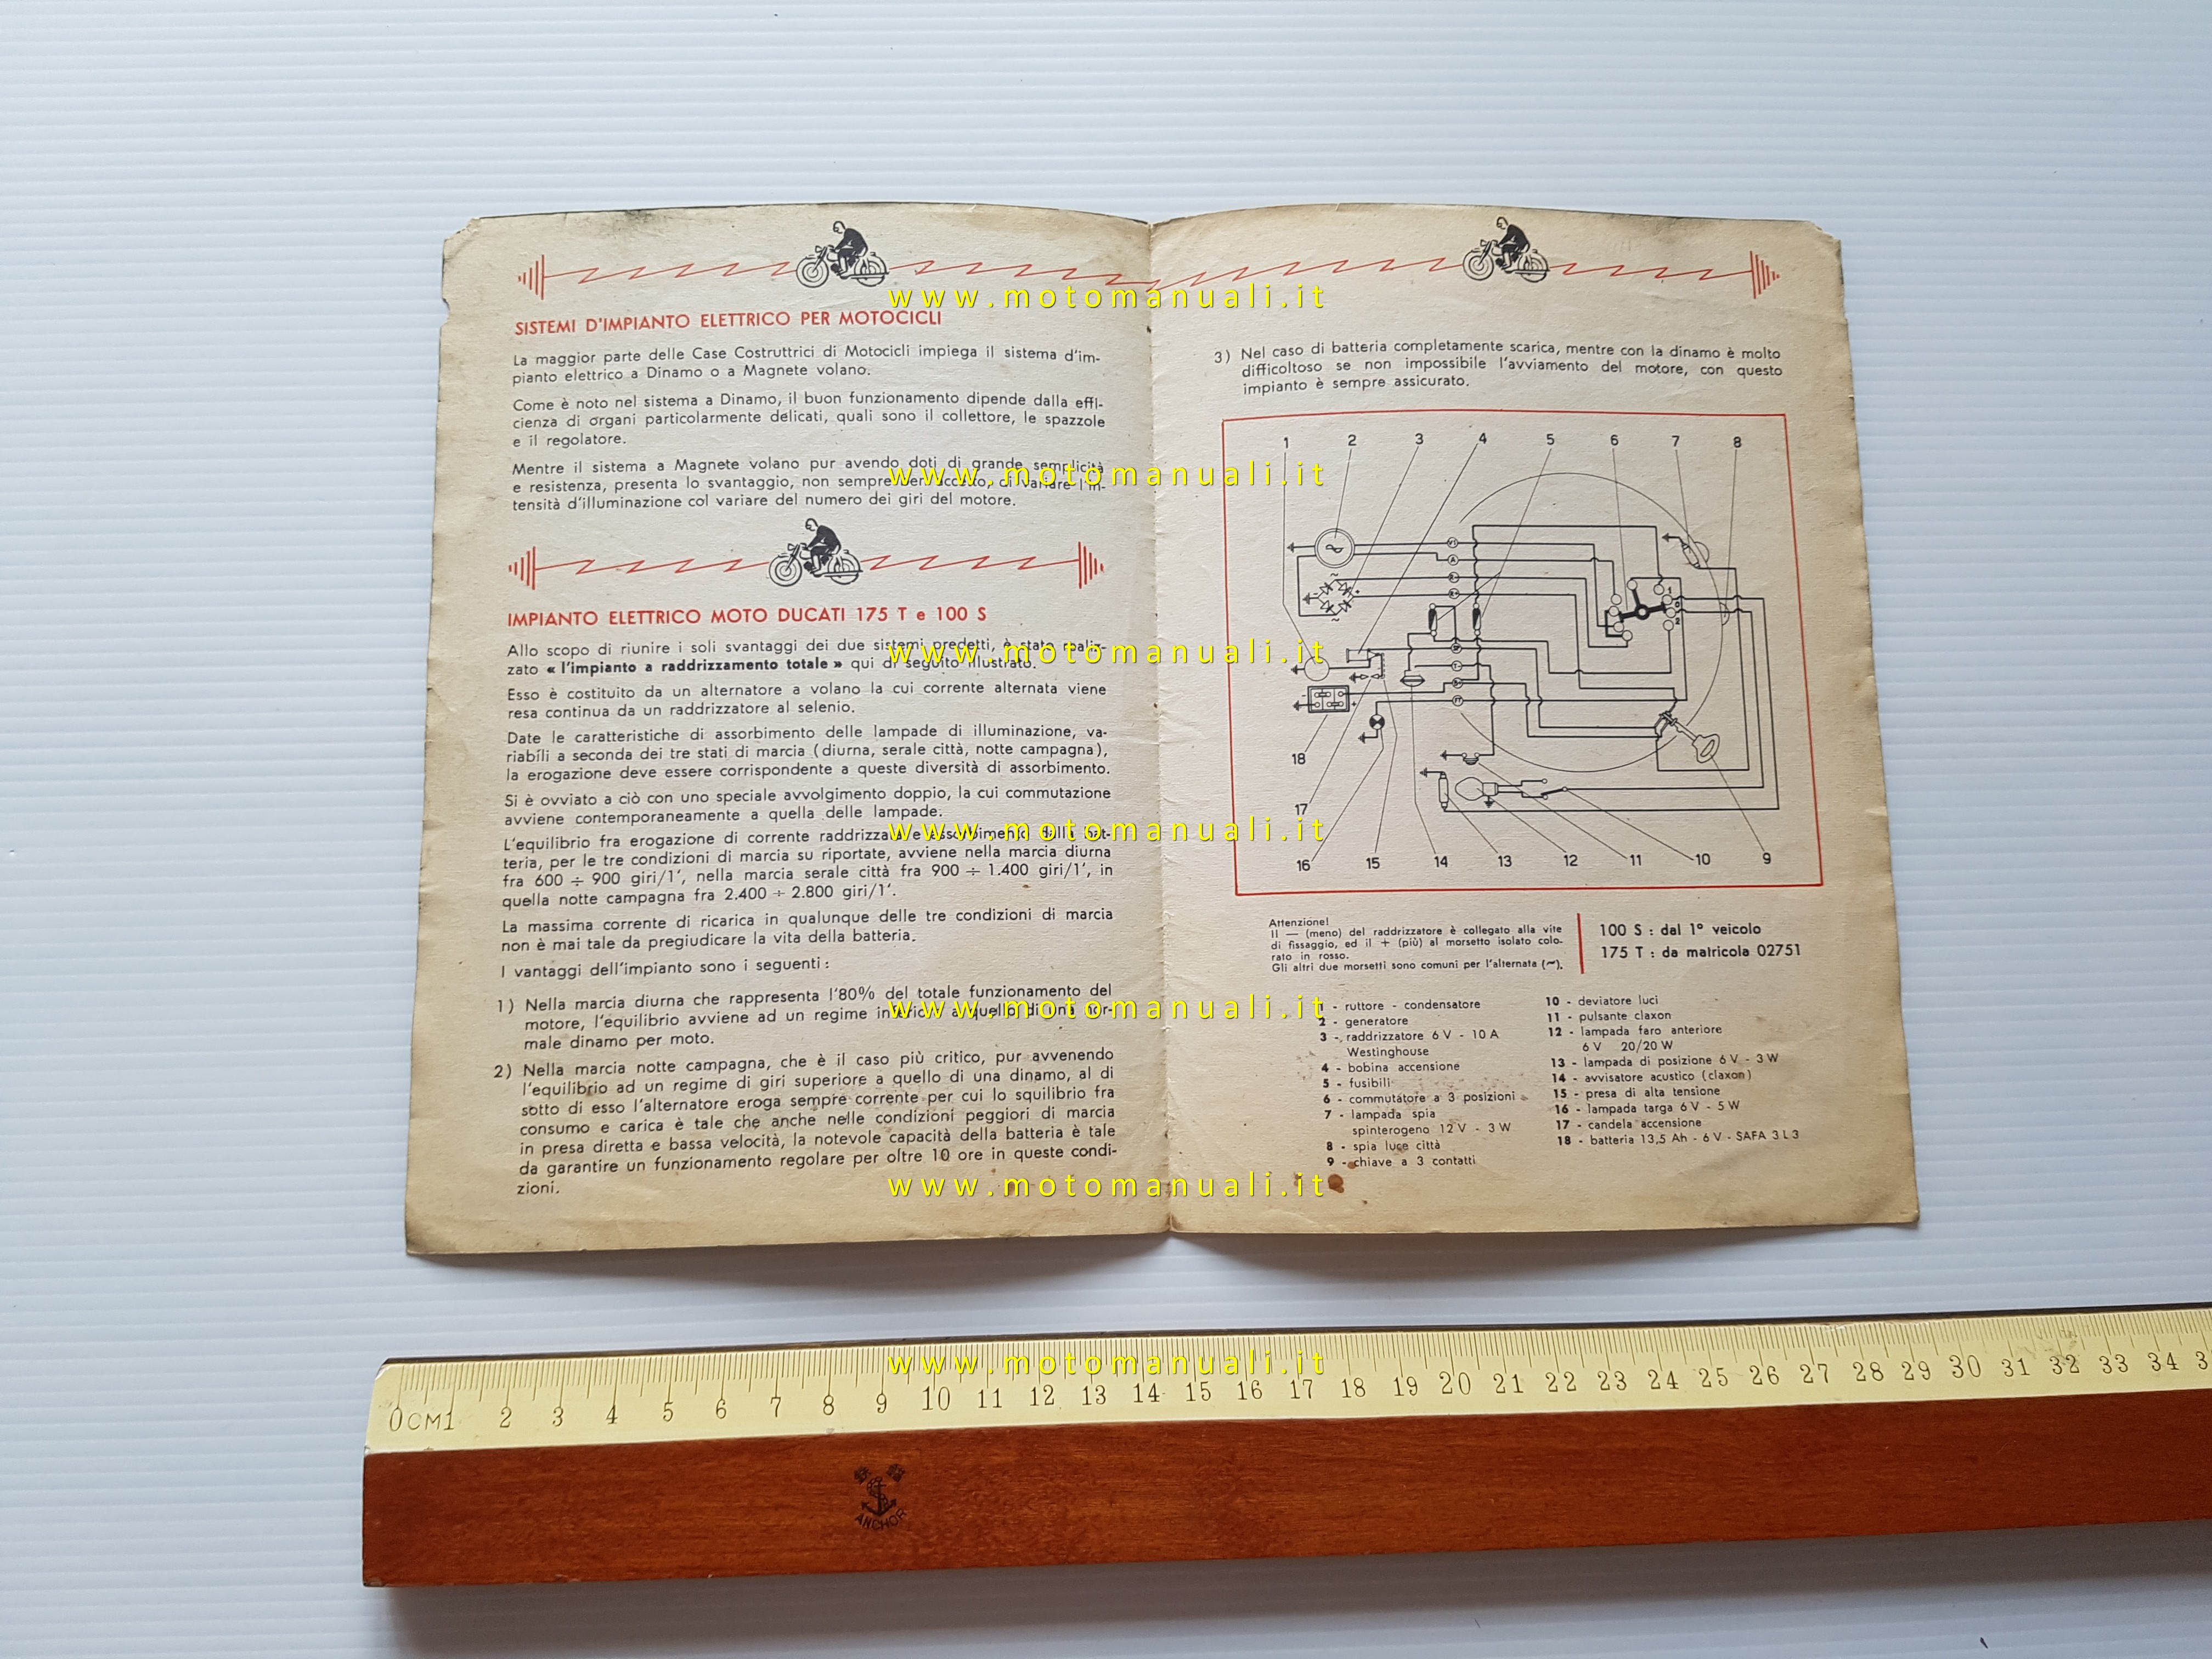 SISTEMI D'IMPIANTO ELETTRICO PER MOTOCICLI
La maggior parte delle Case Costruttrici di Motocicli impiega il sistema d'im-
pianto elettrico a Dinamo o a Magnete volano.
Come è noto nel sistema a Dinamo, il buon funzionamento dipende dalla effi-
cienza di organi particolarmente delicati, quali sono il collettore, le spazzole
e il regolatore.
Mentre il sistema a Magnete volano pur avendo doti di grande semplicità
e resistenza, presenta lo svantaggio, non sempre ben accetto, di variare l'in-
tensità d'illuminazione col variare del numero dei giri del motore.
IMPIANTO ELETTRICO MOTO DUCATI 175 T e 100 S
Allo scopo di riunire i soli svantaggi dei due sistemi predetti, è stato realiz-
zato « l'impianto a raddrizzamento totale » qui di seguito illustrato.
Esso è costituito da un alternatore a volano la cui corrente alternata viene
resa continua da un raddrizzatore al selenio.
Date le caratteristiche di assorbimento delle lampade di illuminazione, va-
riabili a seconda dei tre stati di marcia (diurna, serale città, notte campagna),
la erogazione deve essere corrispondente a queste diversità di assorbimento.
Si è ovviato a ciò con uno speciale avvolgimento doppio, la cui commutazione
avviene contemporaneamente a quella delle lampade.
L'equilibrio fra erogazione di corrente raddrizzata e assorbimento dalla bat-
teria, per le tre condizioni di marcia su riportate, avviene nella marcia diurna
fra 600 ÷ 900 giri/1', nella marcia serale città fra 900 ÷ 1.400 giri/1', in
quella notte campagna fra 2.400 ÷ 2.800 giri/1'.
La massima corrente di ricarica in qualunque delle tre condizioni di marcia
non è mai tale da pregiudicare la vita della batteria.
I vantaggi dell'impianto sono i seguenti :
1) Nella marcia diurna che rappresenta l'80% del totale funzionamento del
motore, l'equilibrio avviene ad un regime inferiore a quello di una nor-
male dinamo per moto.
2) Nella marcia notte campagna, che è il caso più critico, pur avvenendo
l'equilibrio ad un regime di giri superiore a quello di una dinamo, al di
sotto di esso l'alternatore eroga sempre corrente per cui lo squilibrio fra
consumo e carica è tale che anche nelle condizioni peggiori di marcia
in presa diretta e bassa velocità, la notevole capacità della batteria è tale
da garantire un funzionamento regolare per oltre 10 ore in queste condi-
zioni.
3) Nel caso di batteria completamente scarica, mentre con la dinamo è molto
difficoltoso se non impossibile l'avviamento del motore, con questo
impianto è sempre assicurato.
1 2 3 4 5 6 7 8
18
17
16 15 14 13 12 11 10 9
Attenzione!
Il — (meno) del raddrizzatore è collegato alla vite
di fissaggio, ed il + (più) al morsetto isolato colo-
rato in rosso.
Gli altri due morsetti sono comuni per l'alternata (~).
100 S : dal 1° veicolo
175 T : da matricola 02751
1 - ruttore - condensatore
2 - generatore
3 - raddrizzatore 6 V - 10 A
Westinghouse
4 - bobina accensione
5 - fusibili
6 - commutatore a 3 posizioni
7 - lampada spia
spinterogeno 12 V - 3 W
8 - spia luce città
9 - chiave a 3 contatti
10 - deviatore luci
11 - pulsante claxon
12 - lampada faro anteriore
6 V 20/20 W
13 - lampada di posizione 6 V - 3 W
14 - avvisatore acustico (claxon)
15 - presa di alta tensione
16 - lampada targa 6 V - 5 W
17 - candela accensione
18 - batteria 13,5 Ah - 6 V - SAFA 3 L 3
www.motomanuali.it
www.motomanuali.it
www.motomanuali.it
www.motomanuali.it
www.motomanuali.it
www.motomanuali.it
www.motomanuali.it
0CM1 2 3 4 5 6 7 8 9 10 11 12 13 14 15 16 17 18 19 20 21 22 23 24 25 26 27 28 29 30 31 32 33 34
ANCHOR